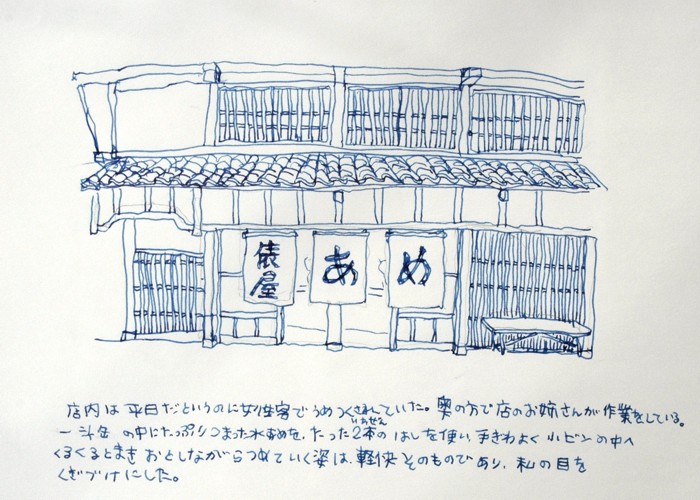 俵屋
あ
め
店内は平日だというのに女性客でうめつくされていた。奥の方で店のお姉さんが作業をしている。
一斗缶の中にたっぷりつまった水あめを、たった2本のはしを使い、手ぎわよく小ビンの中へ
いっせん
くるくるとまきおとしながらつめていく姿は、軽快そのものであり、私の目を
くぎづけにした。